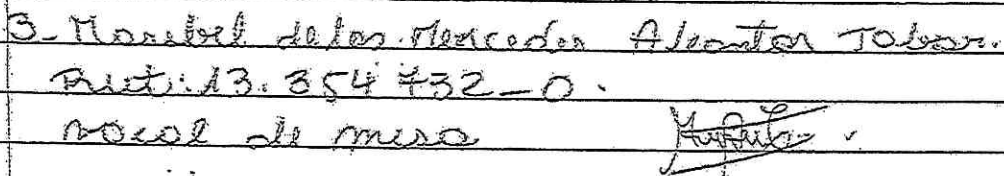 3- Marebel de las Mercedes Alcantar Tobar.
Rut: 13.354 732-0.
vocal de mesa